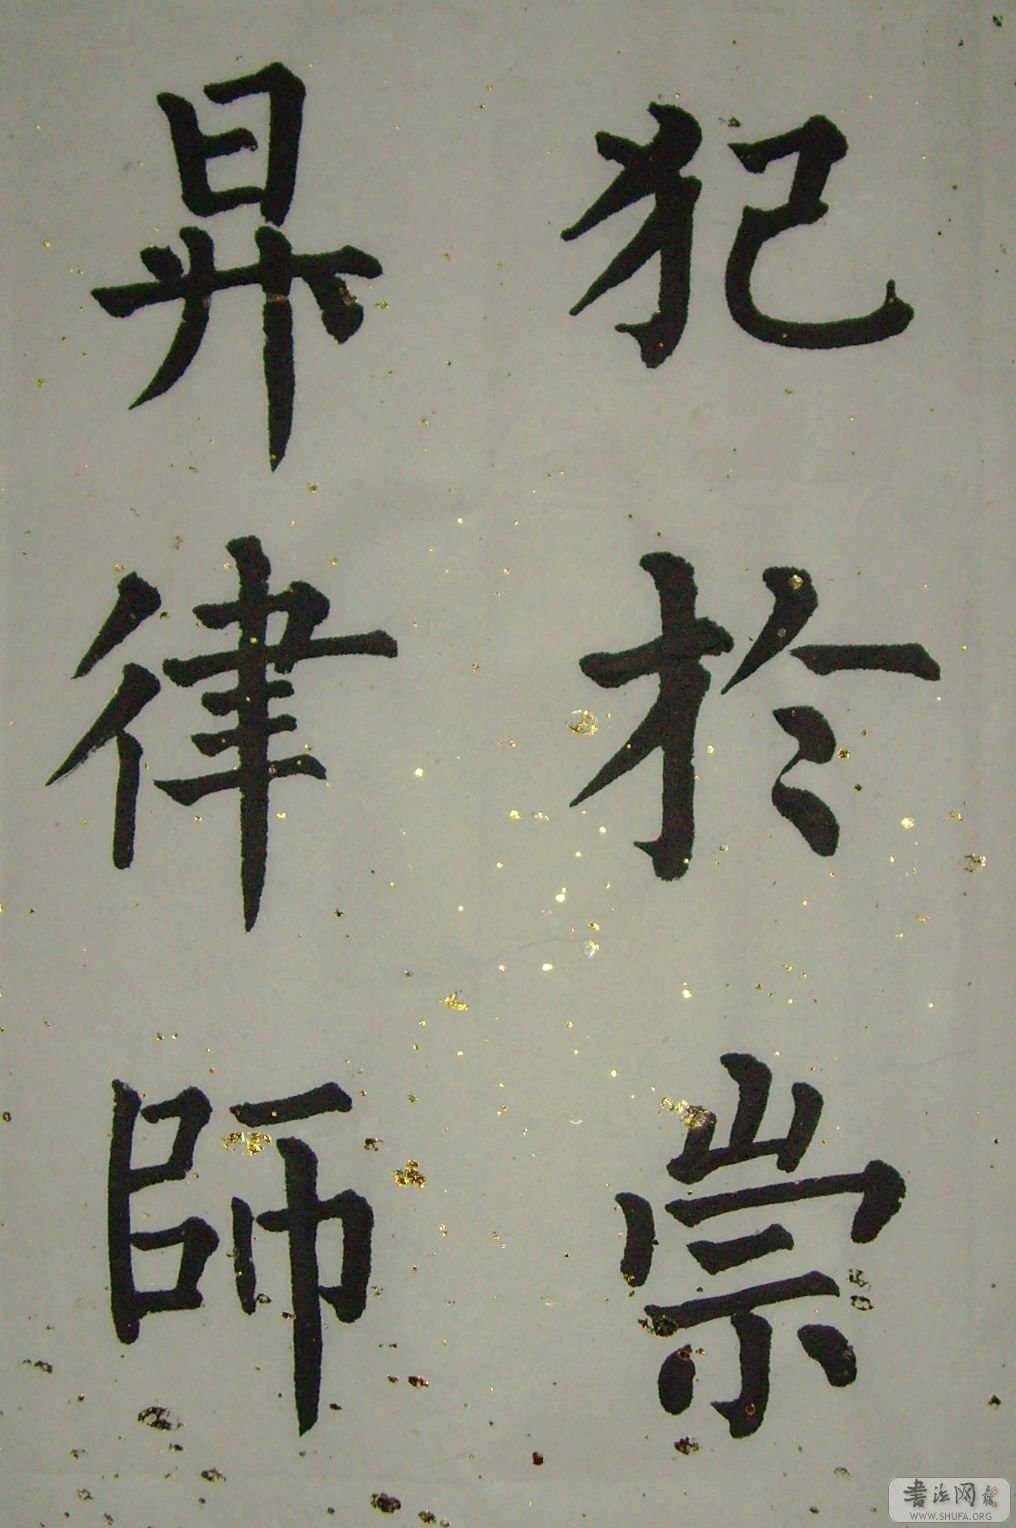 犯於崇
昇律師
書法网
WWW.SHUFA.ORG